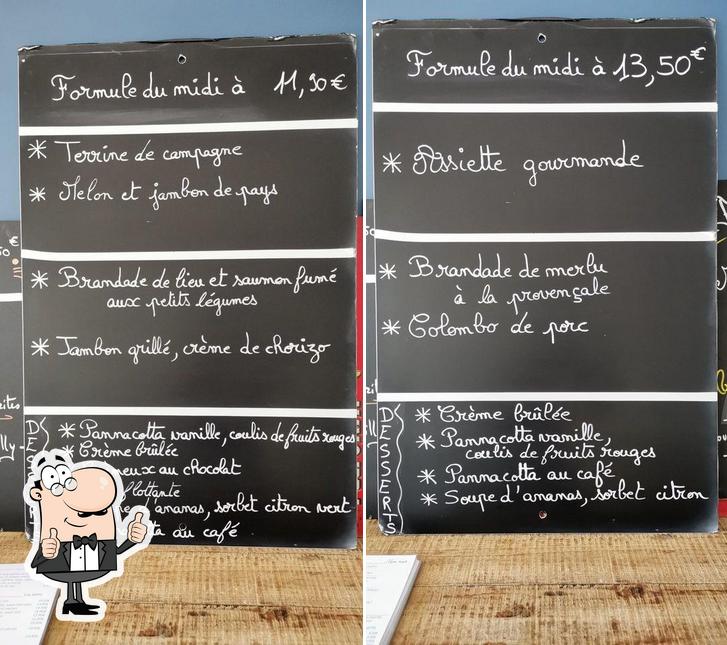 Formule du midi à 11,90 €
* Terrine de campagne
* Melon et jambon de pays
* Brandade de lieu et saumon fumé
aux petits légumes
* Jambon grillé, crème de chorizo
* Pannacotta vanille, coulis de fruits rouges
* Crème brûlée
au chocolat
flottante
ananas, sorbet citron vert
au café
Formule du midi à 13,50€
* Assiette gourmande
* Brandade de merlu
à la provençale
* Colombo de porc
DESSERTS
* Crème brûlée
* Pannacotta vanille,
coulis de fruits rouges
* Pannacotta au café
* Soupe d'ananas, sorbet citron